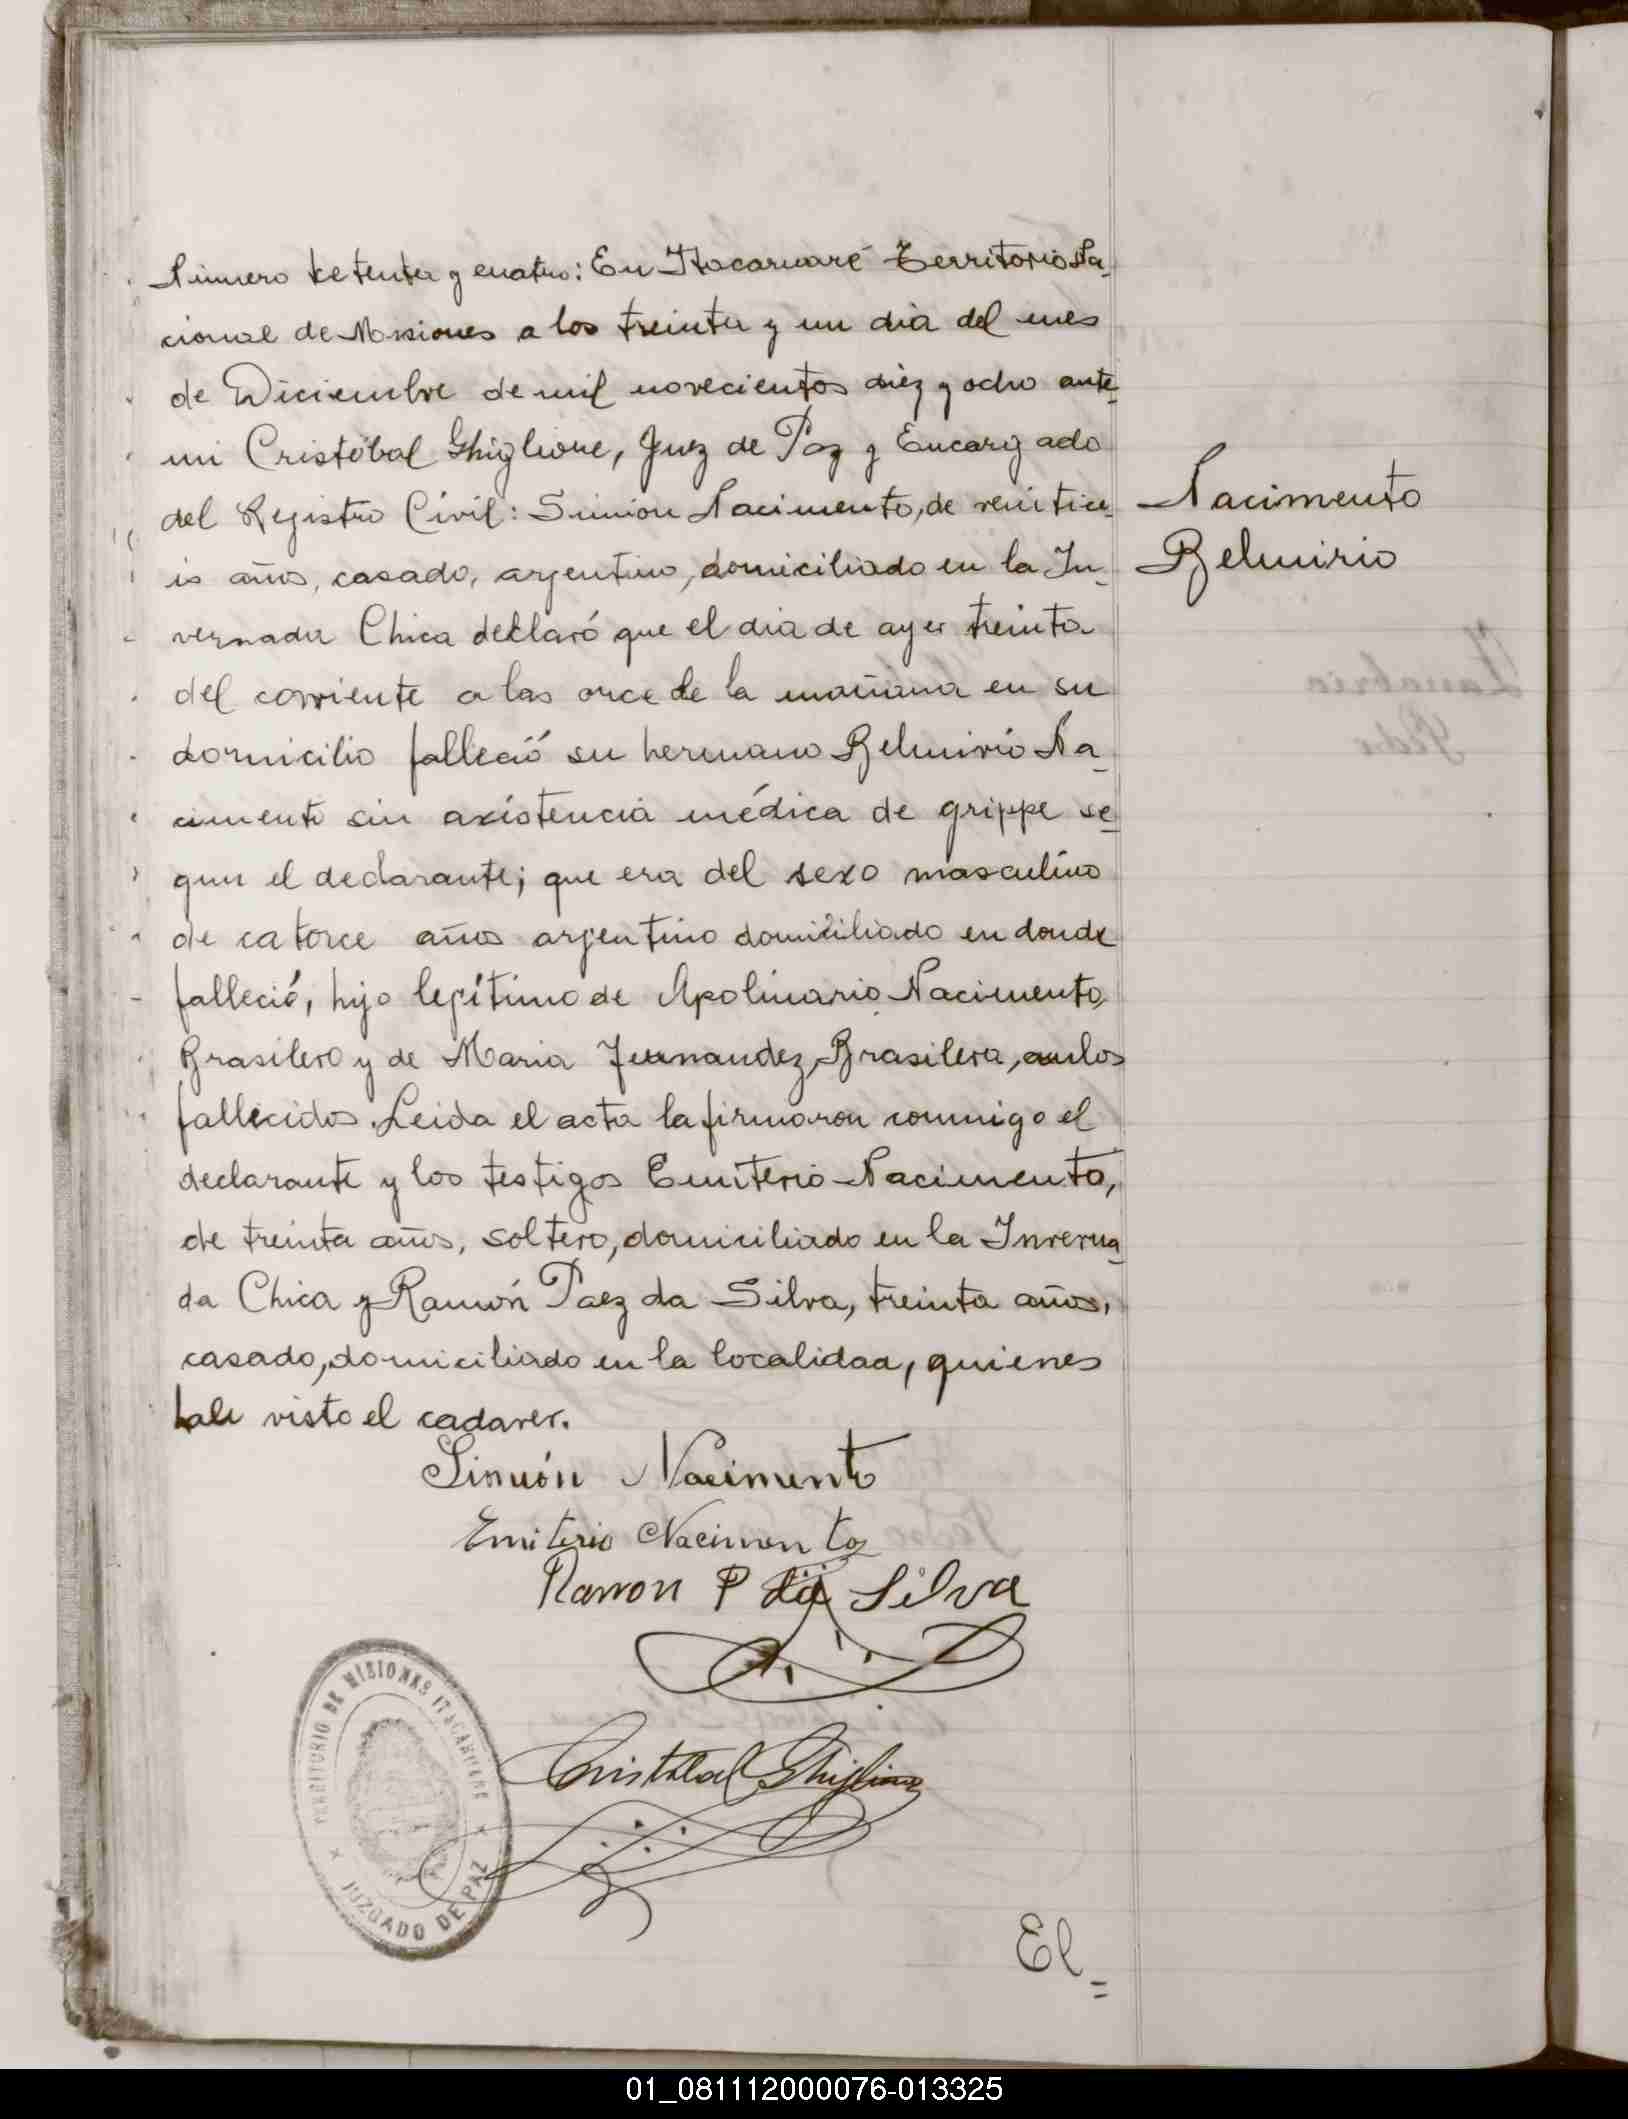 Número setenta y cuatro: En Itacaruaré Territorio Na-
cional de Misiones a los treinta y un dia del mes
de Diciembre de mil novecientos diez y ocho ante
mi Cristóbal Ghiglione, Juez de Paz y Encargado
del Registro Civil: Simion Nacimento, de veintise-
is años, casado, argentino, domiciliado en la In-
vernada Chica declaró que el dia de ayer treinta
del corriente a las once de la mañana en su
domicilio falleció su hermano Belmirio Na-
cimento sin axistencia médica de grippe se-
gun el declarante; que era del sexo masculino
de catorce años argentino domiciliado en donde
falleció, hijo legítimo de Apolinario Nacimento,
Brasilero y de Maria Fernandez, Brasilera, ambos
fallecidos. Leida el acta la firmaron conmigo el
declarante y los testigos Emiterio Nacimento,
de treinta años, soltero, domiciliado en la Inverna-
da Chica y Ramón Paez da Silva, treinta años,
casado, domiciliado en la localidad, quienes
han visto el cadaver.
Simión Nacimento
Emiterio Nacimento
Ramon P da Silva
Cristóbal Ghiglione
TERRITORIO DE MISIONES ITACARUARE
JUZGADO DE PAZ
El=
Nacimento
Belmirio
01_081112000076-013325